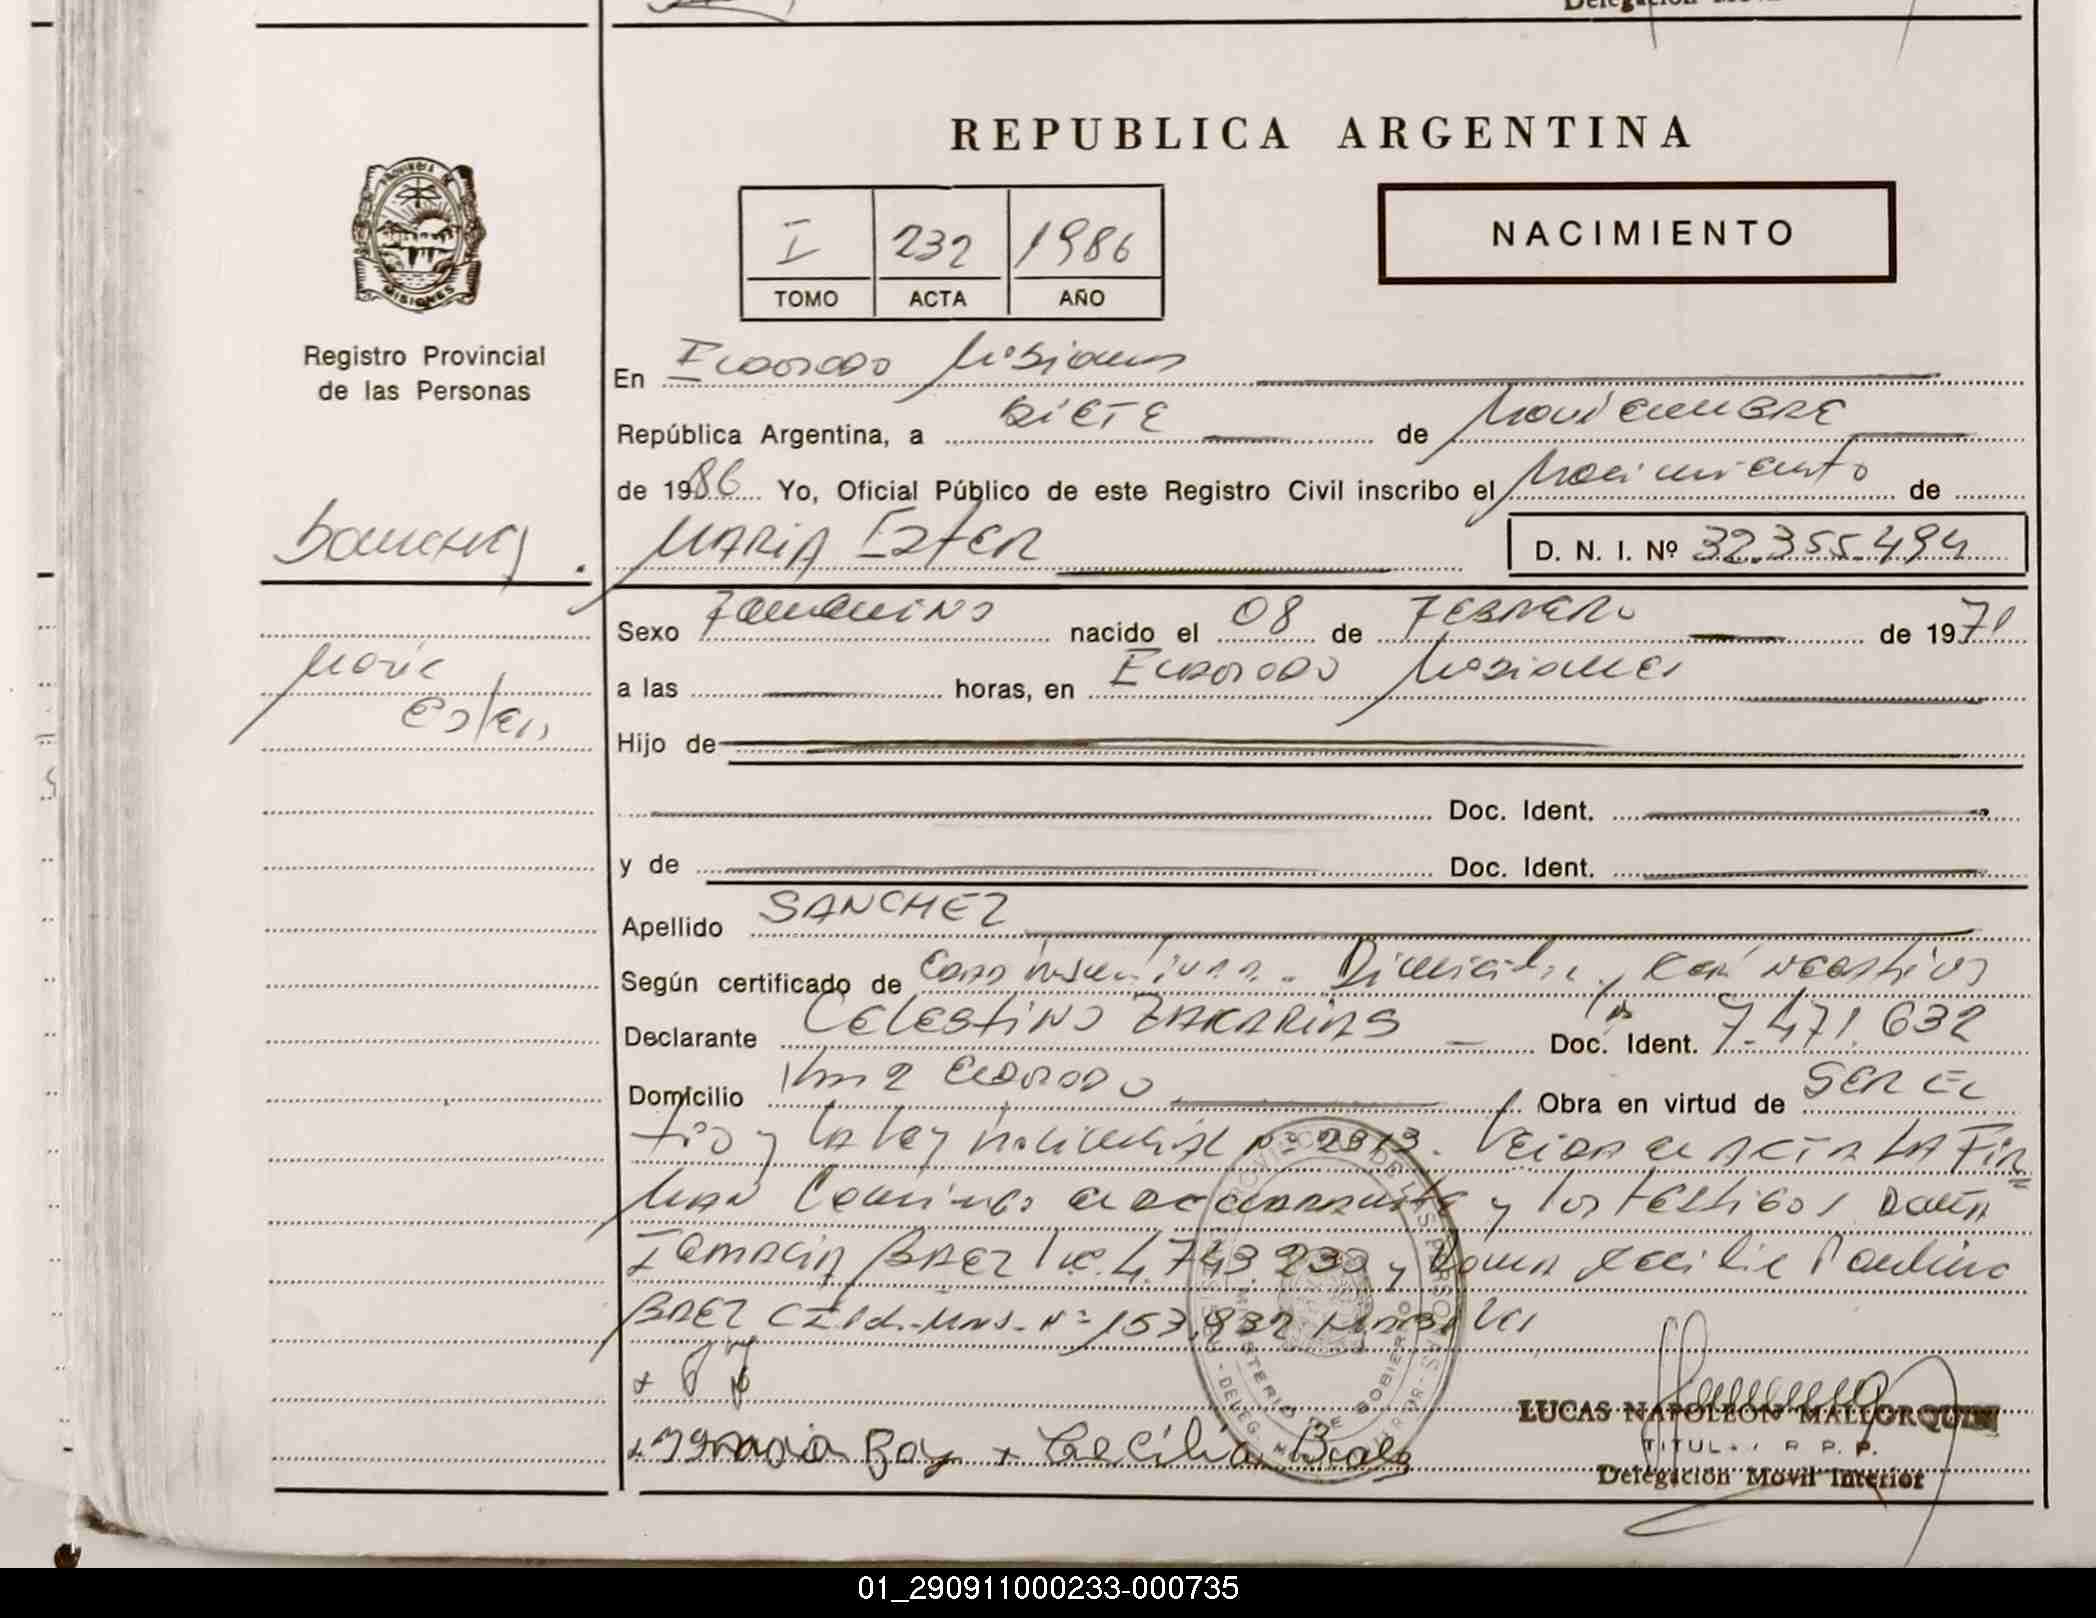 Delegación Movil
REPUBLICA ARGENTINA
PROVINCIA DE
MISIONES
I 232 1986
TOMO ACTA AÑO
NACIMIENTO
Registro Provincial
de las Personas
En Eldorado Misiones
República Argentina, a SIETE de Noviembre
de 1986 Yo, Oficial Público de este Registro Civil inscribo el Nacimiento de
Sanchez. MARIA Ester D. N. I. Nº 32.355.494
Sexo Femenino nacido el 08 de FEBRERO de 1971
Maria
a las horas, en Eldorado Misiones
Ester
Hijo de
y Doc. Ident.
y de Doc. Ident.
Apellido SANCHEZ
Según certificado de
Declarante CELESTINO ZAKARIAS Doc. Ident. 7.471.632
Domicilio Km 2 Eldorado Obra en virtud de SER EL
tio y la ley Nacional Nº Leida el ACTA LA FIR
MAN Conmigo el declarante y los testigos Doña
BAEZ y Doña Cecilia
BAEZ Nº 153.832
Baez x Cecilia
LUCAS NAPOLEON MALLORQUIN
TITULAR R. P. P.
Delegación Movil Interior
01_290911000233-000735